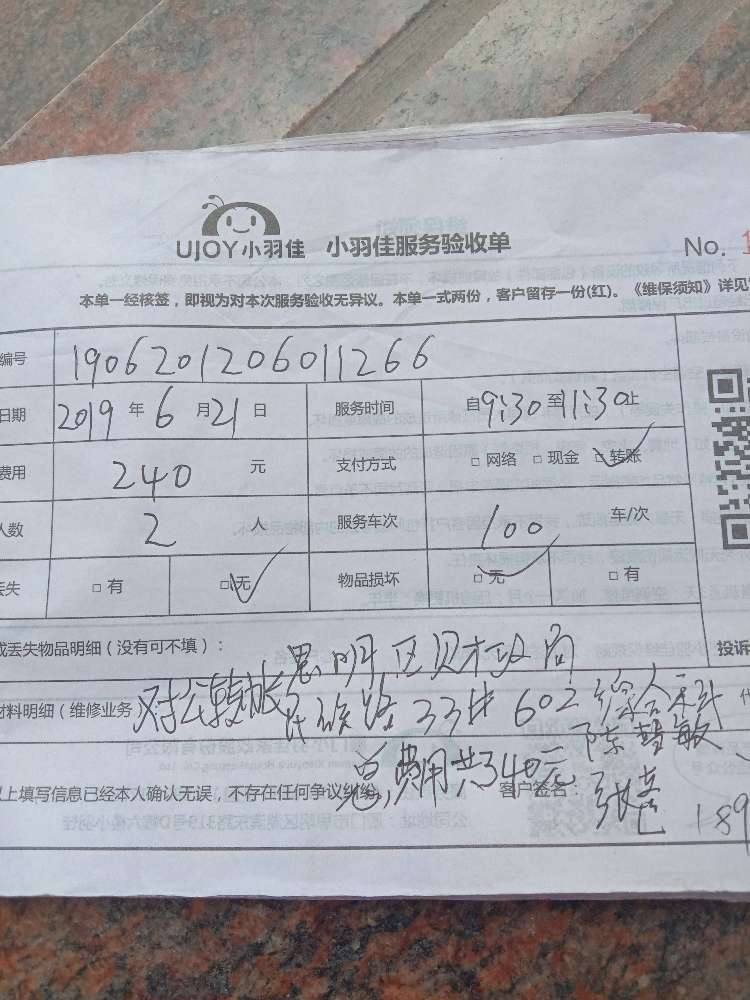 UJOY小羽佳 小羽佳服务验收单
No. 1
本单一经核签，即视为对本次服务验收无异议。本单一式两份，客户留存一份(红)。《维保须知》详见
编号 1906201206011266
日期 2019 年 6 月 21 日 服务时间 自 9:30 至 11:30 止
费用 240 元 支付方式 □ 网络 □ 现金 □ 转账
人数 2 人 服务车次 100 车/次
丢失 □ 有 □ 无 物品损坏 □ 无 □ 有
或丢失物品明细（没有可不填）： 思明区财政局 投诉
材料明细（维修业务） 对公转账 民族路33# 602 综合科
总费用共340元 陈
以上填写信息已经本人确认无误，不存在任何争议纠纷。 客户签名： 189